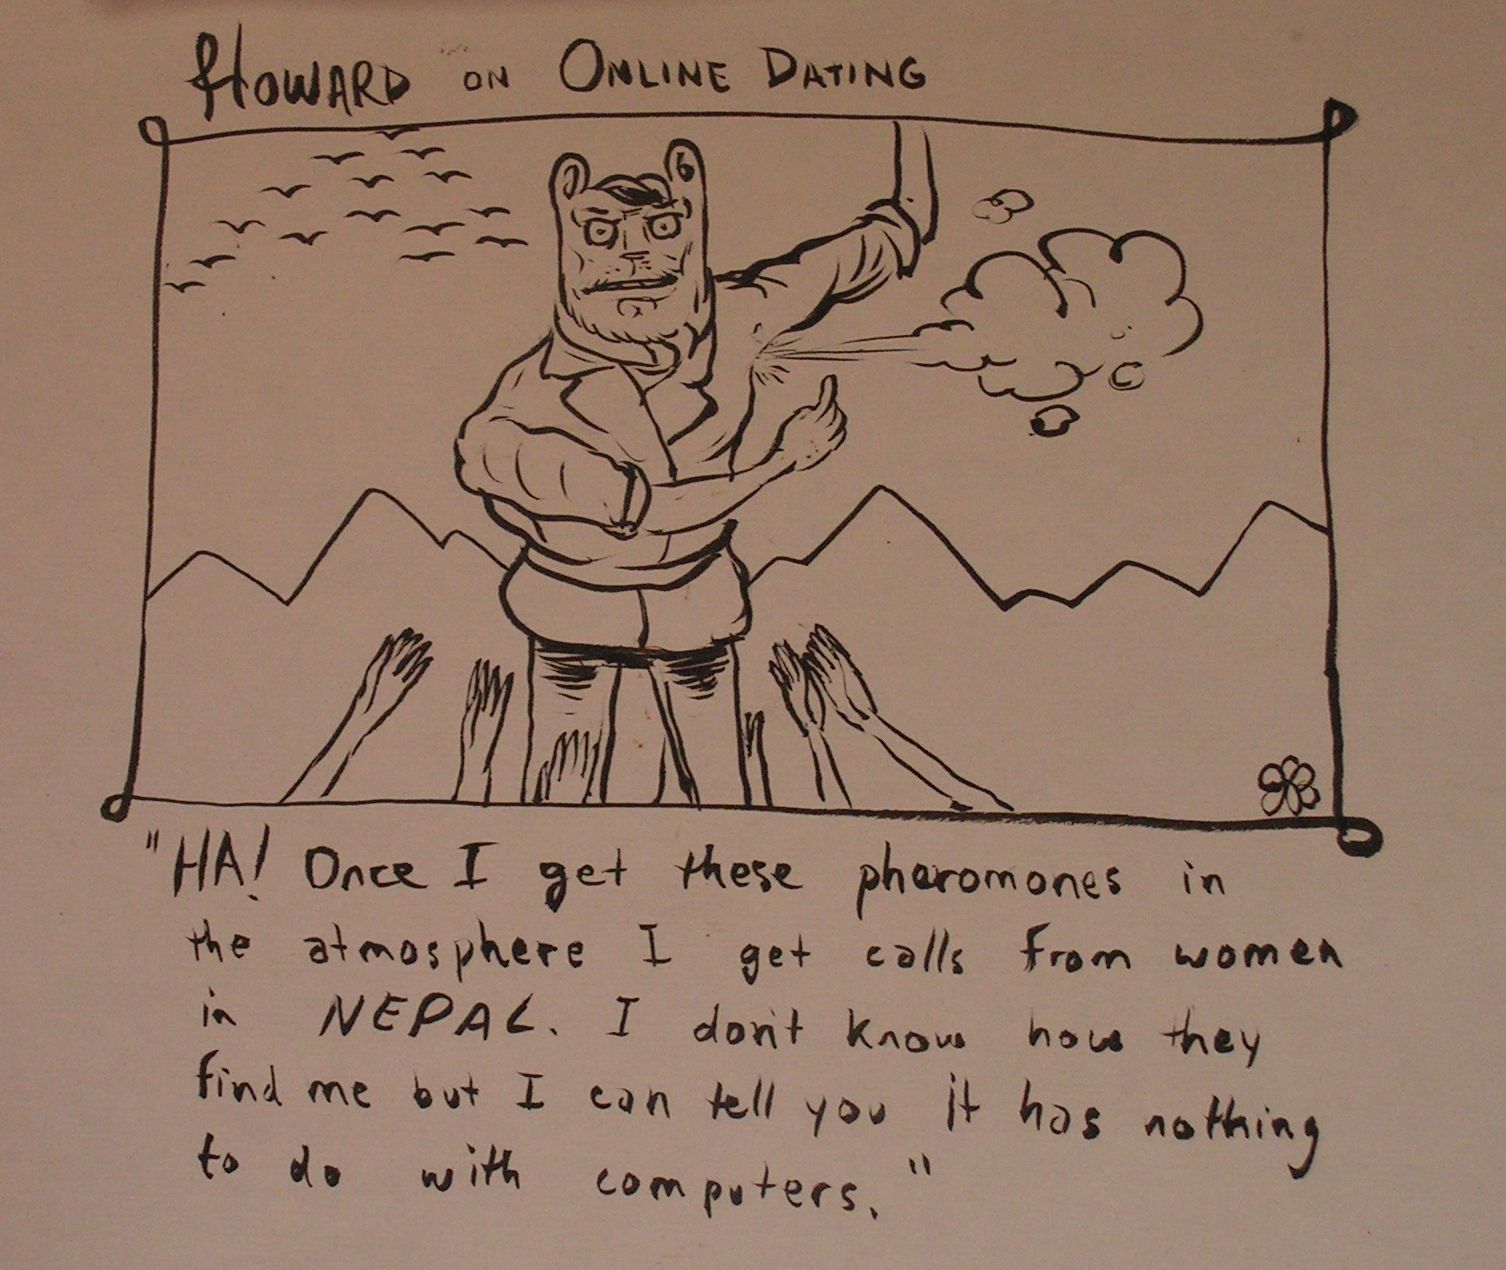 HOWARD ON ONLINE DATING
"HA! Once I get these pheromones in
the atmosphere I get calls from women
in NEPAL. I don't know how they
find me but I can tell you it has nothing
to do with computers."